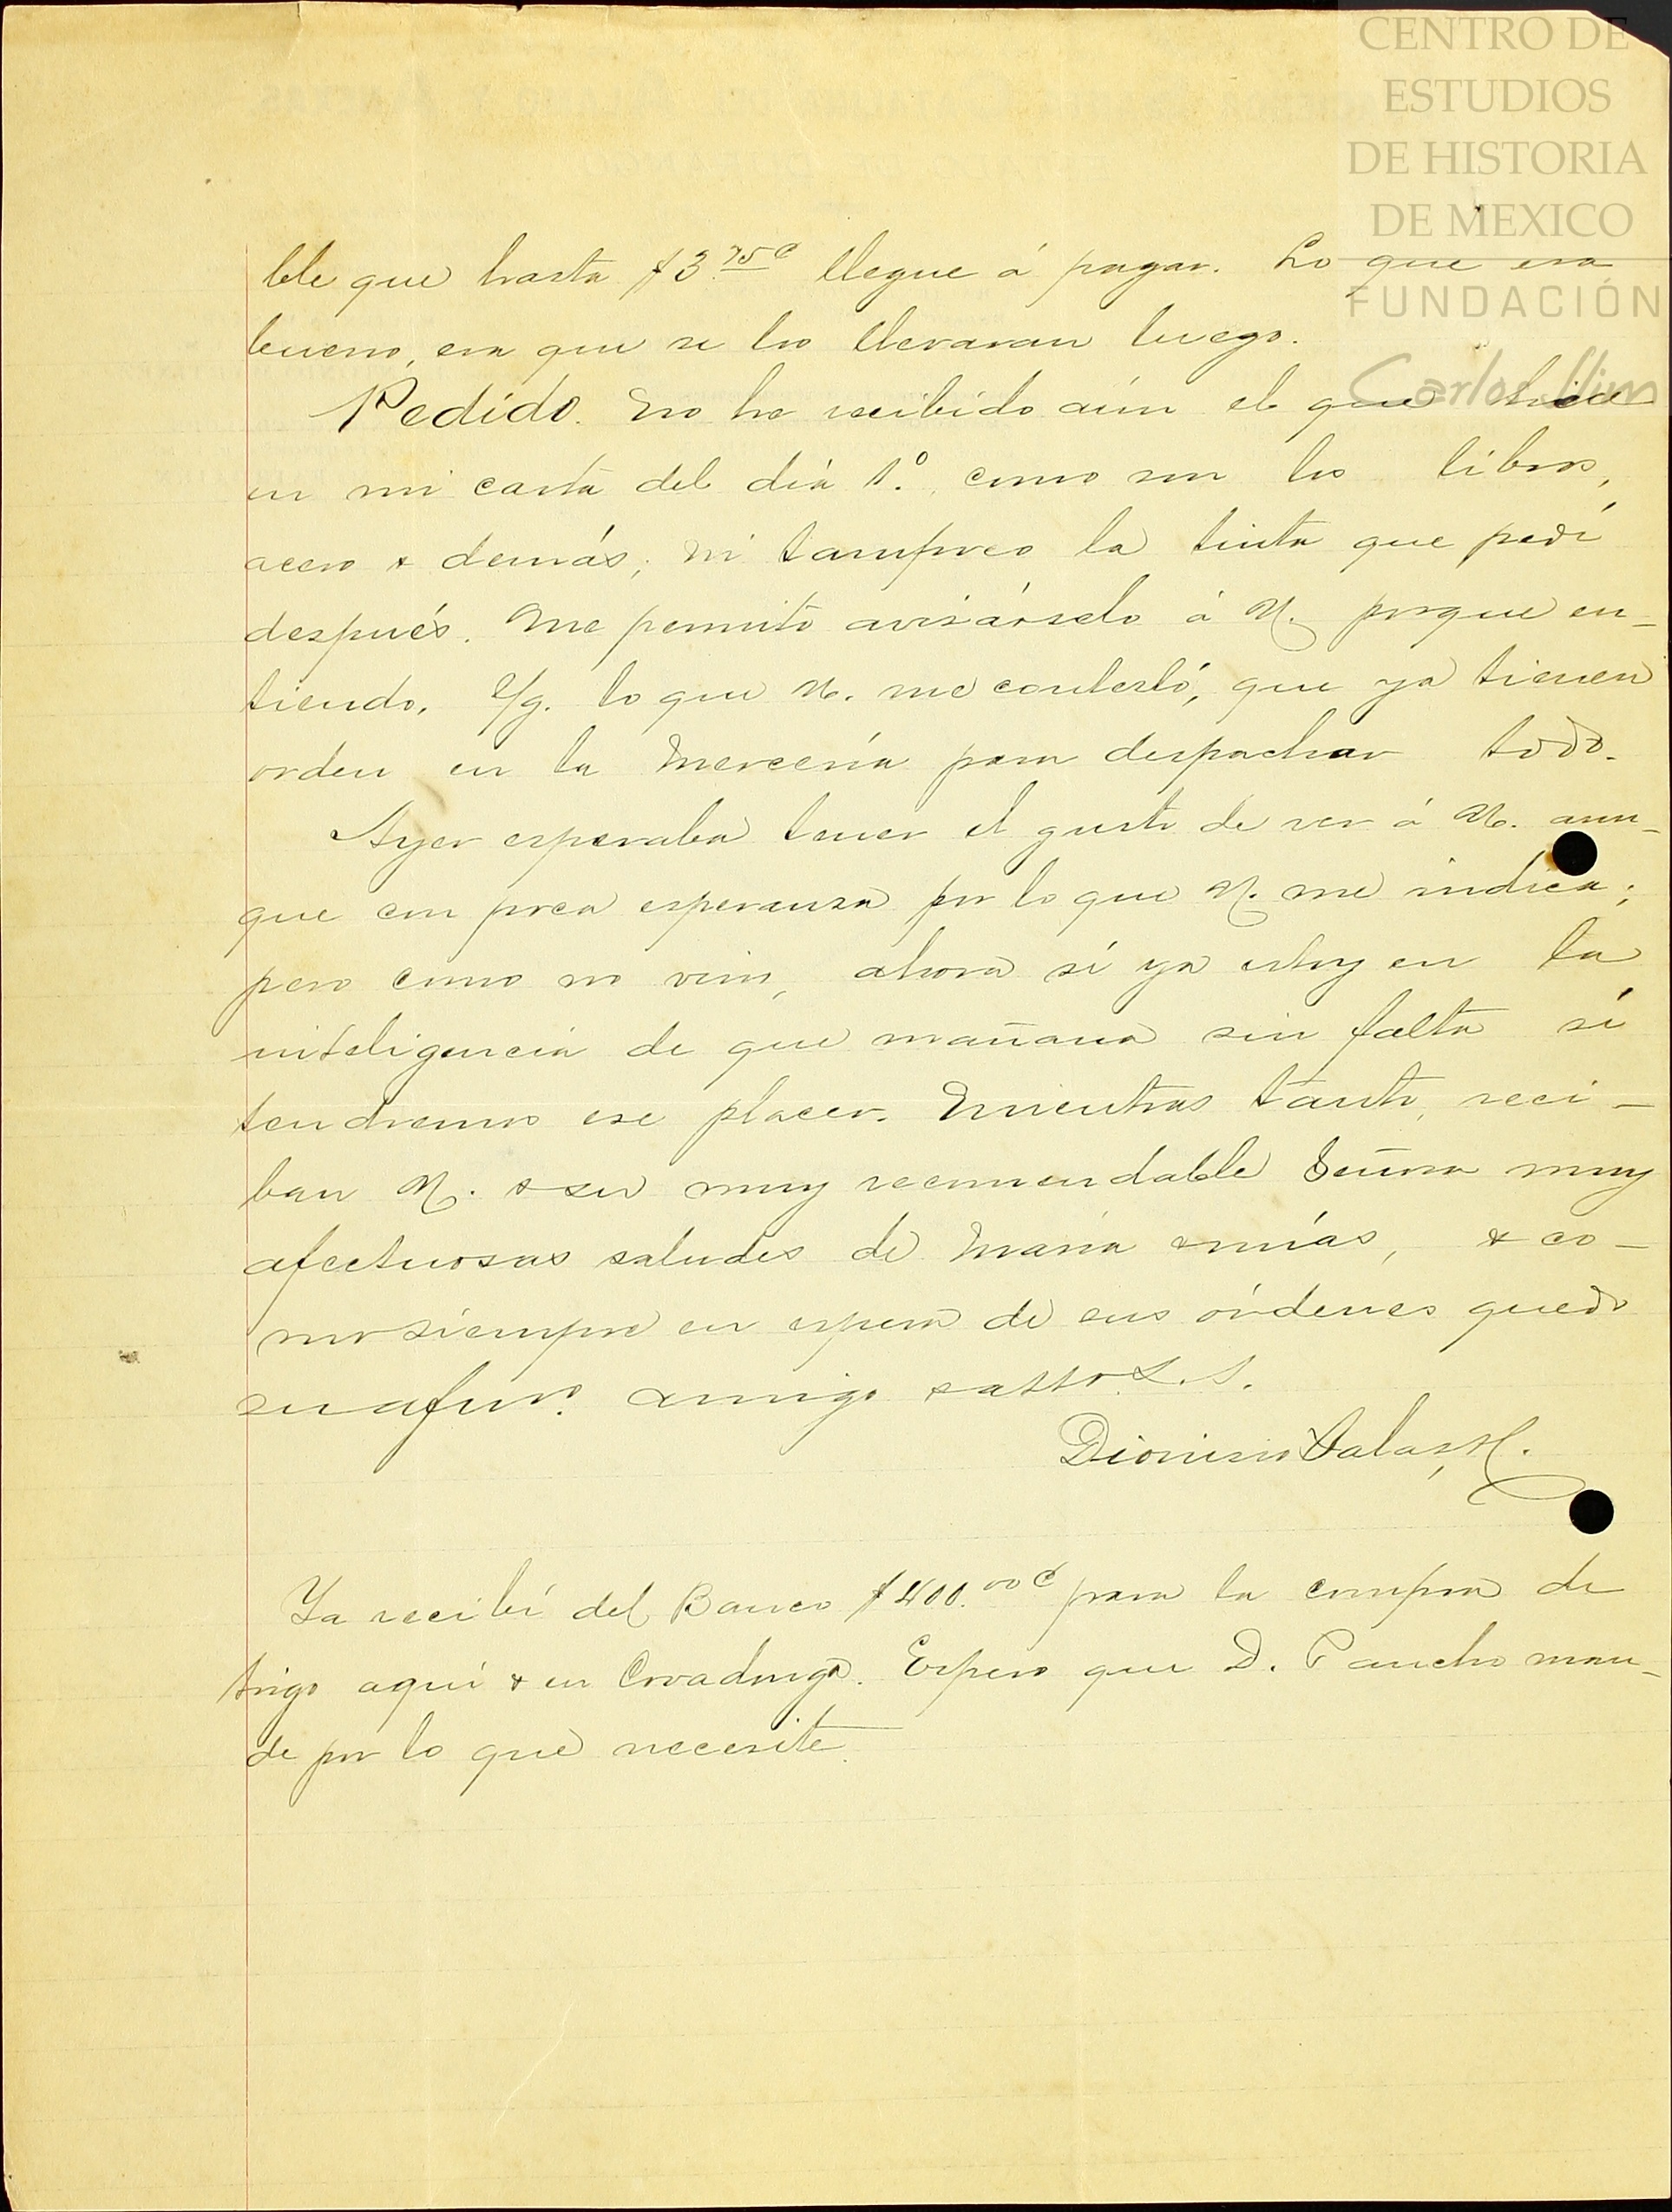 CENTRO DE
ESTUDIOS
DE HISTORIA
DE MEXICO
FUNDACIÓN
Carlos Slim
ble que hasta $3.75¢ llegue á pagar. Lo que era
bueno, era que se lo llevaran luego.
Pedido. No he recibido aún el que hice
en mi carta del día 1º. como son los libros,
acero & demás; ni tampoco la tinta que pedí
después. Me permito avisárselo á U. porque en-
tiendo, s/g. lo que U. me contestó, que ya tienen
orden en la Mercería para despachar todo.
Ayer esperaba tener el gusto de ver á U. aun-
que con poca esperanza por lo que U. me indica;
pero como no vino, ahora sí ya estoy en la
inteligencia de que mañana sin falta sí
tendremos ese placer. Mientras tanto, reci-
ban U. & su muy recomendable Señora muy
afectuosas saludes de María & mías, & co-
mo siempre en espera de sus órdenes quedo
su afmo. amigo & atto. S. S.
Dionisio Salas H.
Ya recibí del Banco $400.00¢ para la compra de
trigo aquí & en Covadonga. Espero que D. Pancho man-
de por lo que necesite.